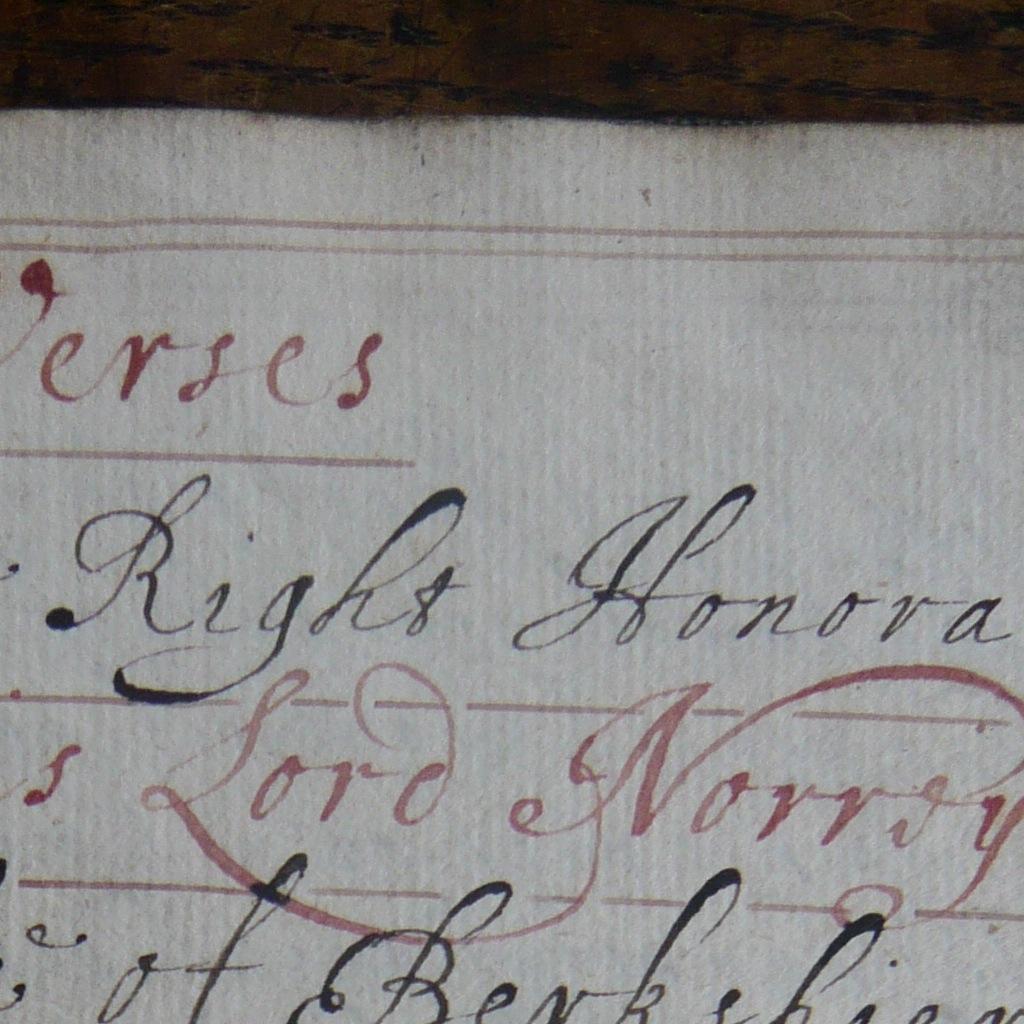 Verses
Right Honora
s Lord Norrey
of Berkshier